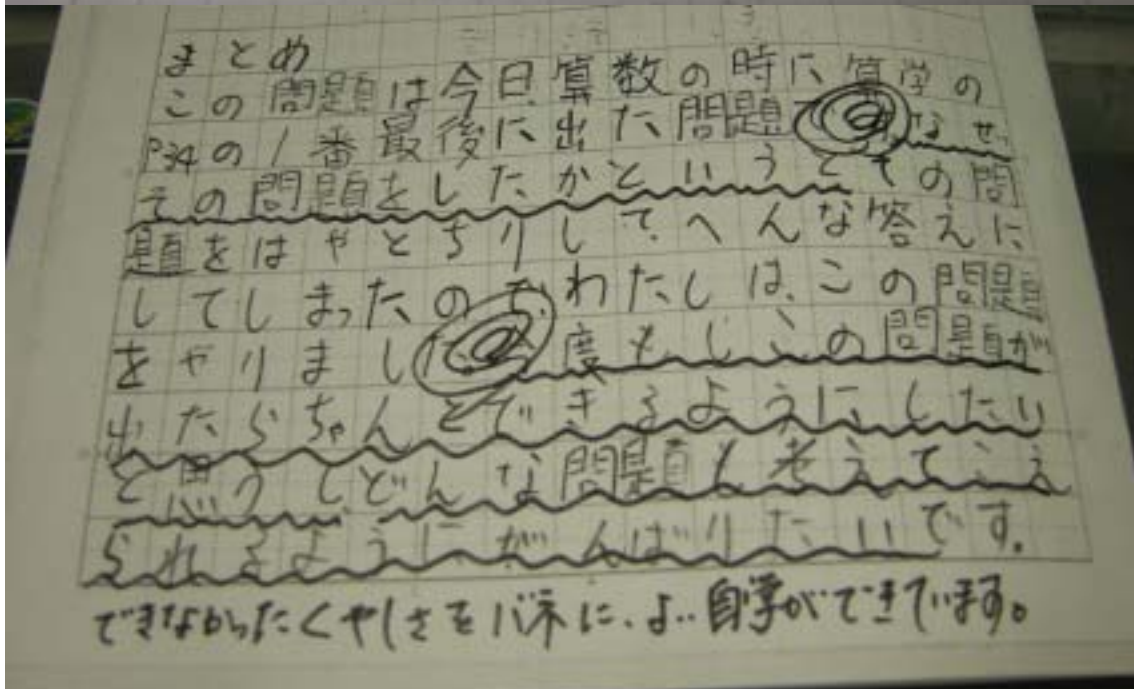 まとめ
この問題は今日算数の時に、算学の
P34の1番最後に出た問題で なぜ
その問題をしたかというとその問
題をはやとちりして、へんな答えに
してしまったので、わたしは、この問題
をやりました 度もしこの問題が
出たらちゃんとできるようにしたい
と思うしどんな問題も考えてこえ
られるようにがんばりたいです。
できなかったくやしさをバネに、よい自学ができています。